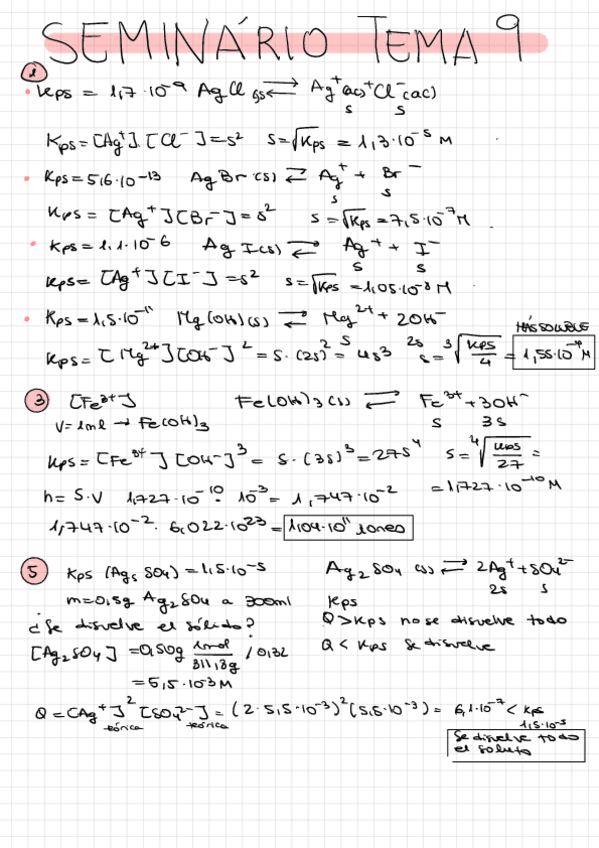 SEMINÁRIO TEMA 9
1
• Kps = 1,7·10⁻⁹ AgCl (s) ⇄ Ag⁺(ac) + Cl⁻(ac)
s s
Kps = [Ag⁺].[Cl⁻] = s² s = √Kps = 1,3·10⁻⁵ M
• Kps = 5,6·10⁻¹³ AgBr (s) ⇄ Ag⁺ + Br⁻
s s
Kps = [Ag⁺][Br⁻] = s² s = √Kps = 7,5·10⁻⁷ M
• Kps = 1,1·10⁻⁶ AgI(s) ⇄ Ag⁺ + I⁻
s s
Kps = [Ag⁺][I⁻] = s² s = √Kps = 1,05·10⁻⁸ M
• Kps = 1,5·10⁻¹¹ Mg(OH)(s) ⇄ Mg²⁺ + 2OH⁻
s 2s
MÁS SOLUBLE
Kps = [Mg²⁺][OH⁻]² = s·(2s)² = 4s³ s = ³√(Kps/4) = 1,55·10⁻⁴ M
3 [Fe³⁺] Fe(OH)3(s) ⇄ Fe³⁺ + 3OH⁻
V = 1ml → Fe(OH)3 s 3s
Kps = [Fe³⁺][OH⁻]³ = s·(3s)³ = 27s⁴ s = ⁴√(Kps/27) =
= 1,727·10⁻¹⁰ M
n = S·V 1,727·10⁻¹⁰· 10⁻³ = 1,747·10⁻²
1,747·10⁻²· 6,022·10²³ = 1,04·10¹¹ iones
5 Kps (Ag₅ SO4) = 1,5·10⁻⁵ Ag2 SO4 (s) ⇄ 2Ag⁺ + SO4²⁻
2s s
m = 0,5g Ag2SO4 a 300ml Kps
¿Se disuelve el sólido? Q > Kps no se disuelve todo
[Ag2SO4] = 0,50g 1mol/311,8g / 0,32 Q < Kps se disuelve
= 5,5·10⁻³ M
Q = [Ag⁺]² [SO4²⁻] = (2·5,5·10⁻³)² (5,5·10⁻³) = 6,1·10⁻⁷ < Kps
teórica teórica 1,5·10⁻⁵
Se disuelve todo
el soluto